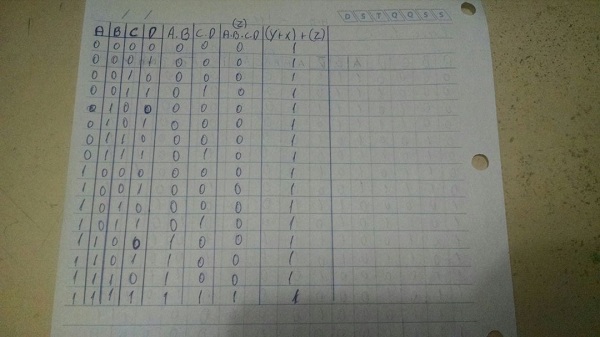 (z)
A B C D A.B C.D A.B.C.D (y+x)+(z)
0 0 0 0 0 0 0 1
0 0 0 1 0 0 0 1
0 0 1 0 0 0 0 1
0 0 1 1 0 1 0 1
0 1 0 0 0 0 0 1
0 1 0 1 0 0 0 1
0 1 1 0 0 0 0 1
0 1 1 1 0 1 0 1
1 0 0 0 0 0 0 1
1 0 0 1 0 0 0 1
1 0 1 0 0 0 0 1
1 0 1 1 0 1 0 1
1 1 0 0 1 0 0 1
1 1 0 1 1 0 0 1
1 1 1 0 1 0 0 1
1 1 1 1 1 1 1 1